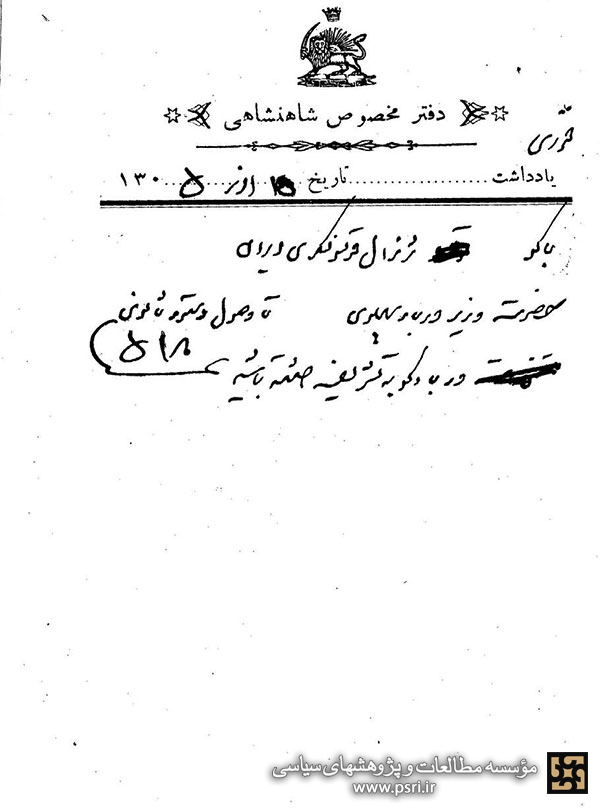 دفتر مخصوص شاهنشاهی
فوری
یادداشت .................... تاریخ ۱۵ آذر ۱۳۰۵
باکو ژنرال قونسولگری ایران
حضرت وزیر دربار پهلوی تا وصول دستور ثانوی
در بادکوبه تشریف داشته باشید
مؤسسه مطالعات و پژوهشهای سیاسی
www.psri.ir